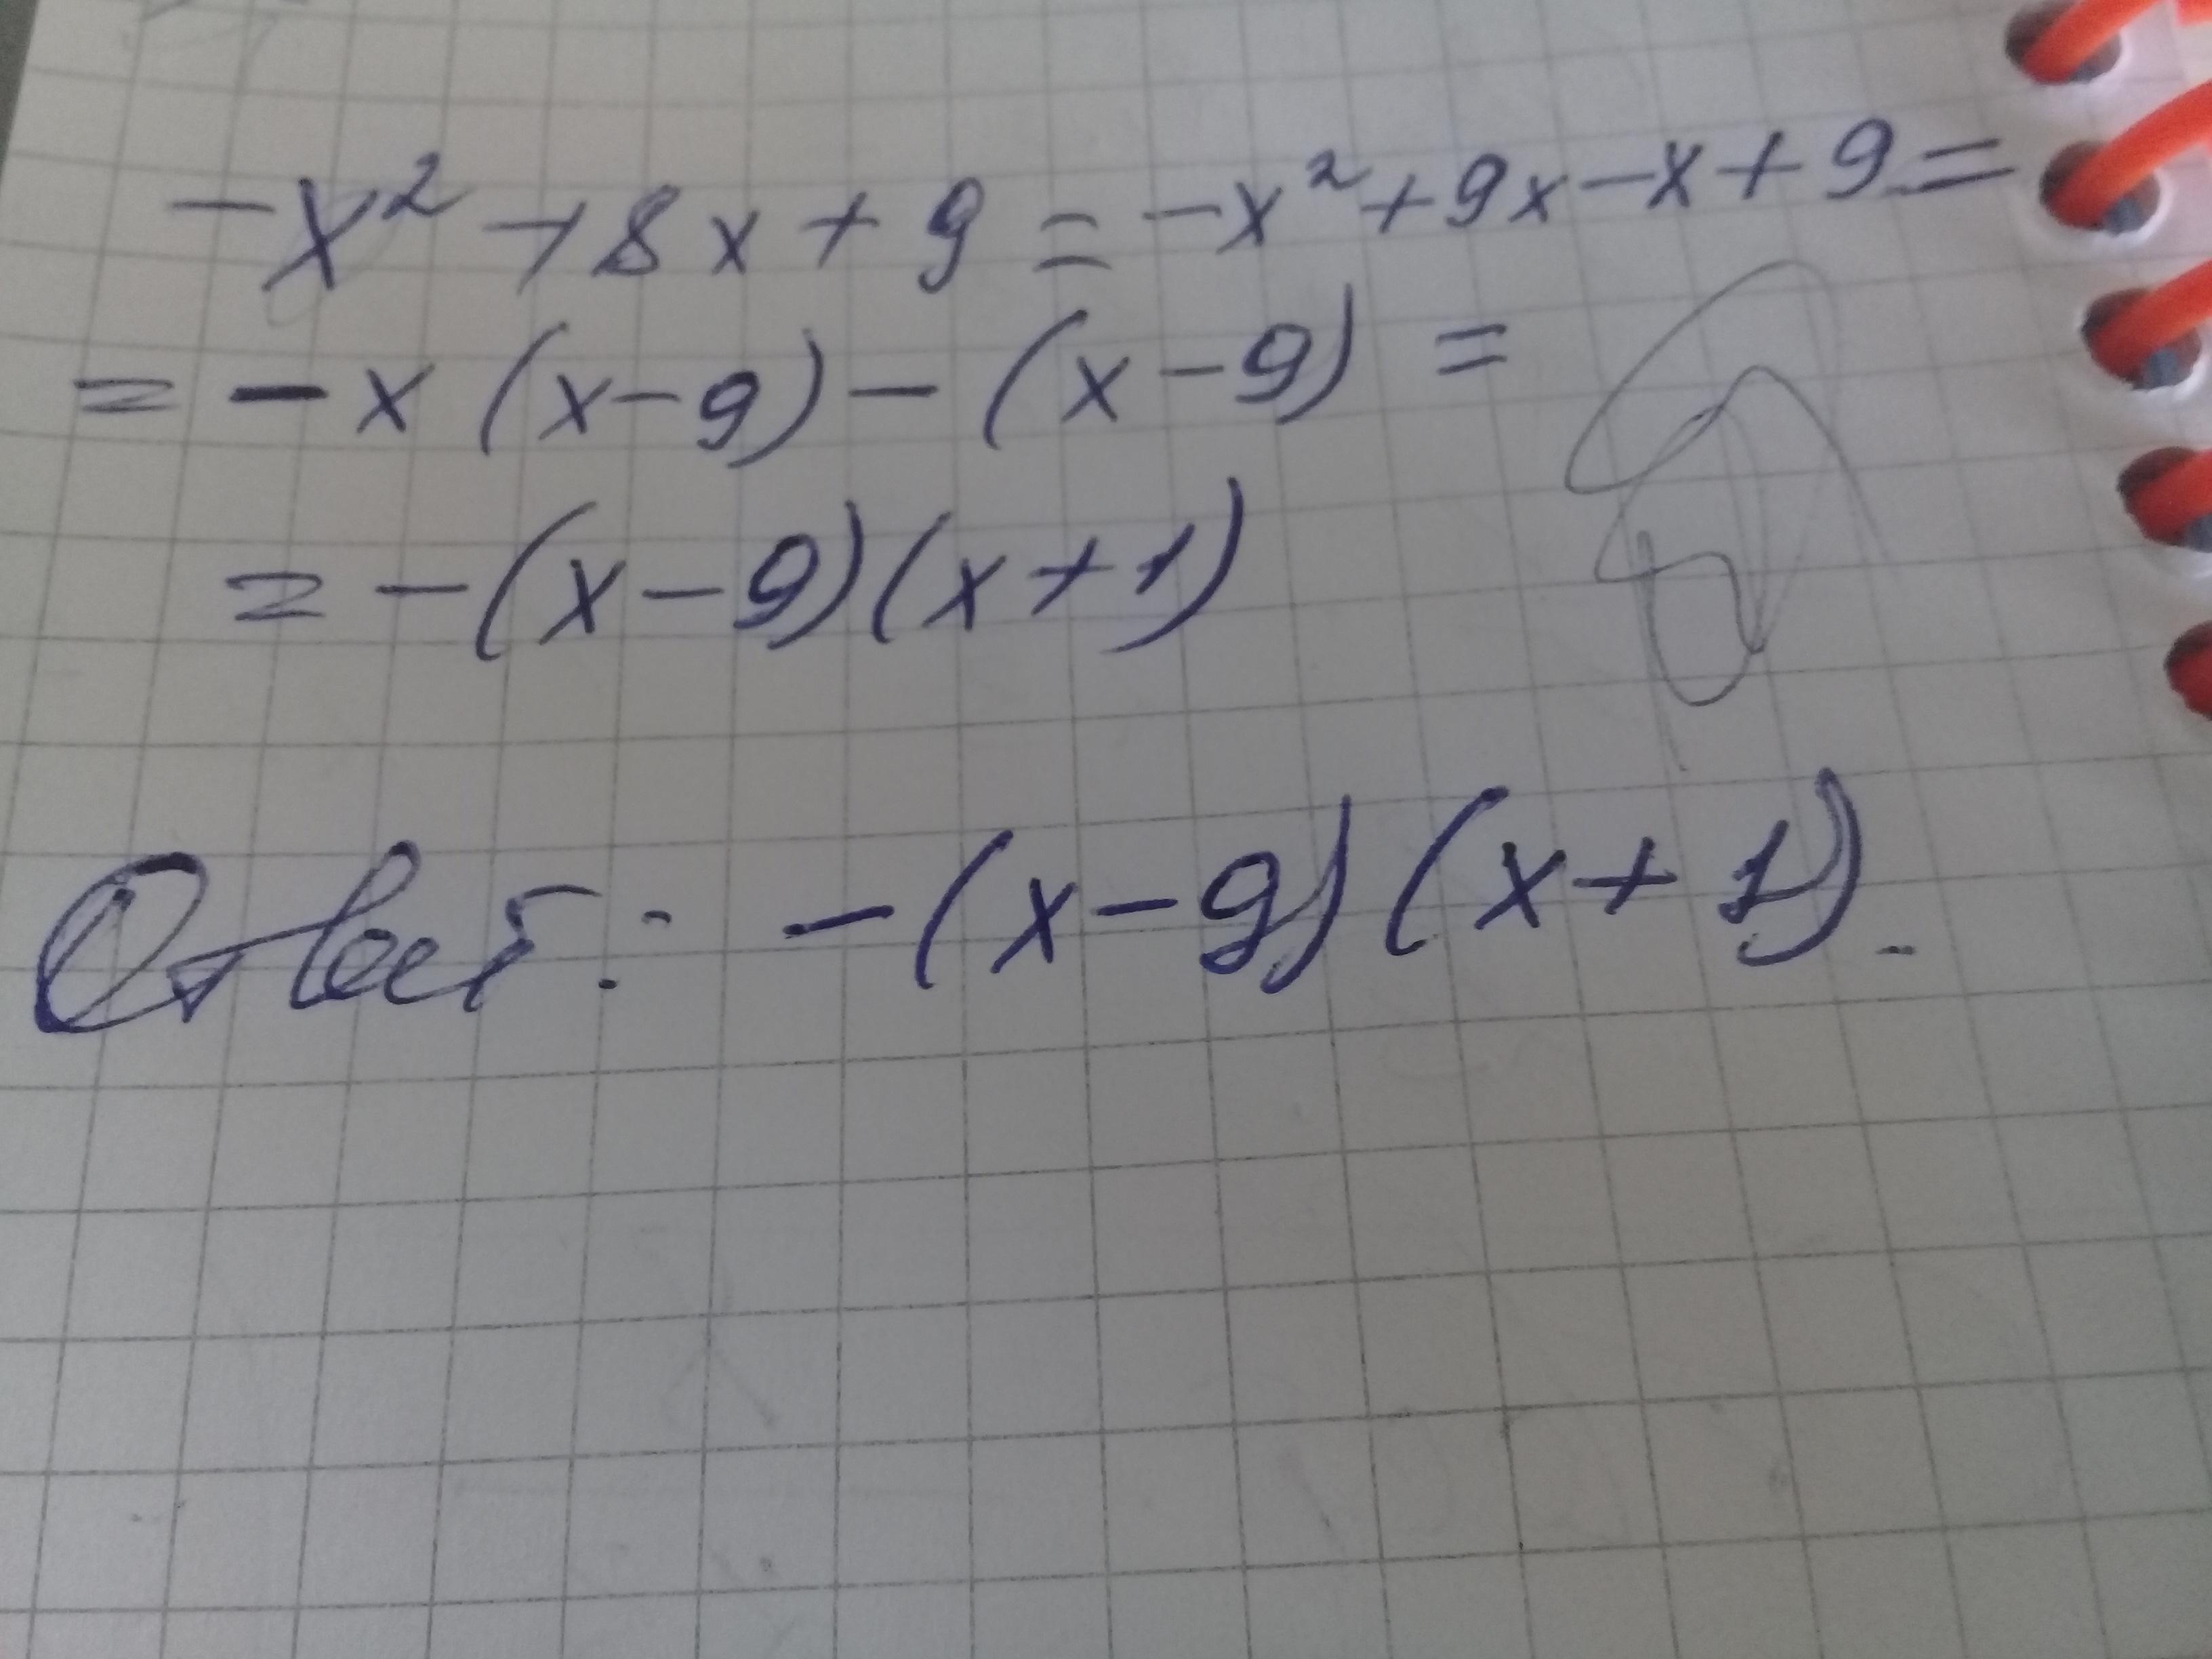 -x² + 8x + 9 = -x² + 9x - x + 9 =
= -x (x - 9) - (x - 9) =
= -(x - 9)(x + 1)
Ответ: -(x - 9)(x + 1).